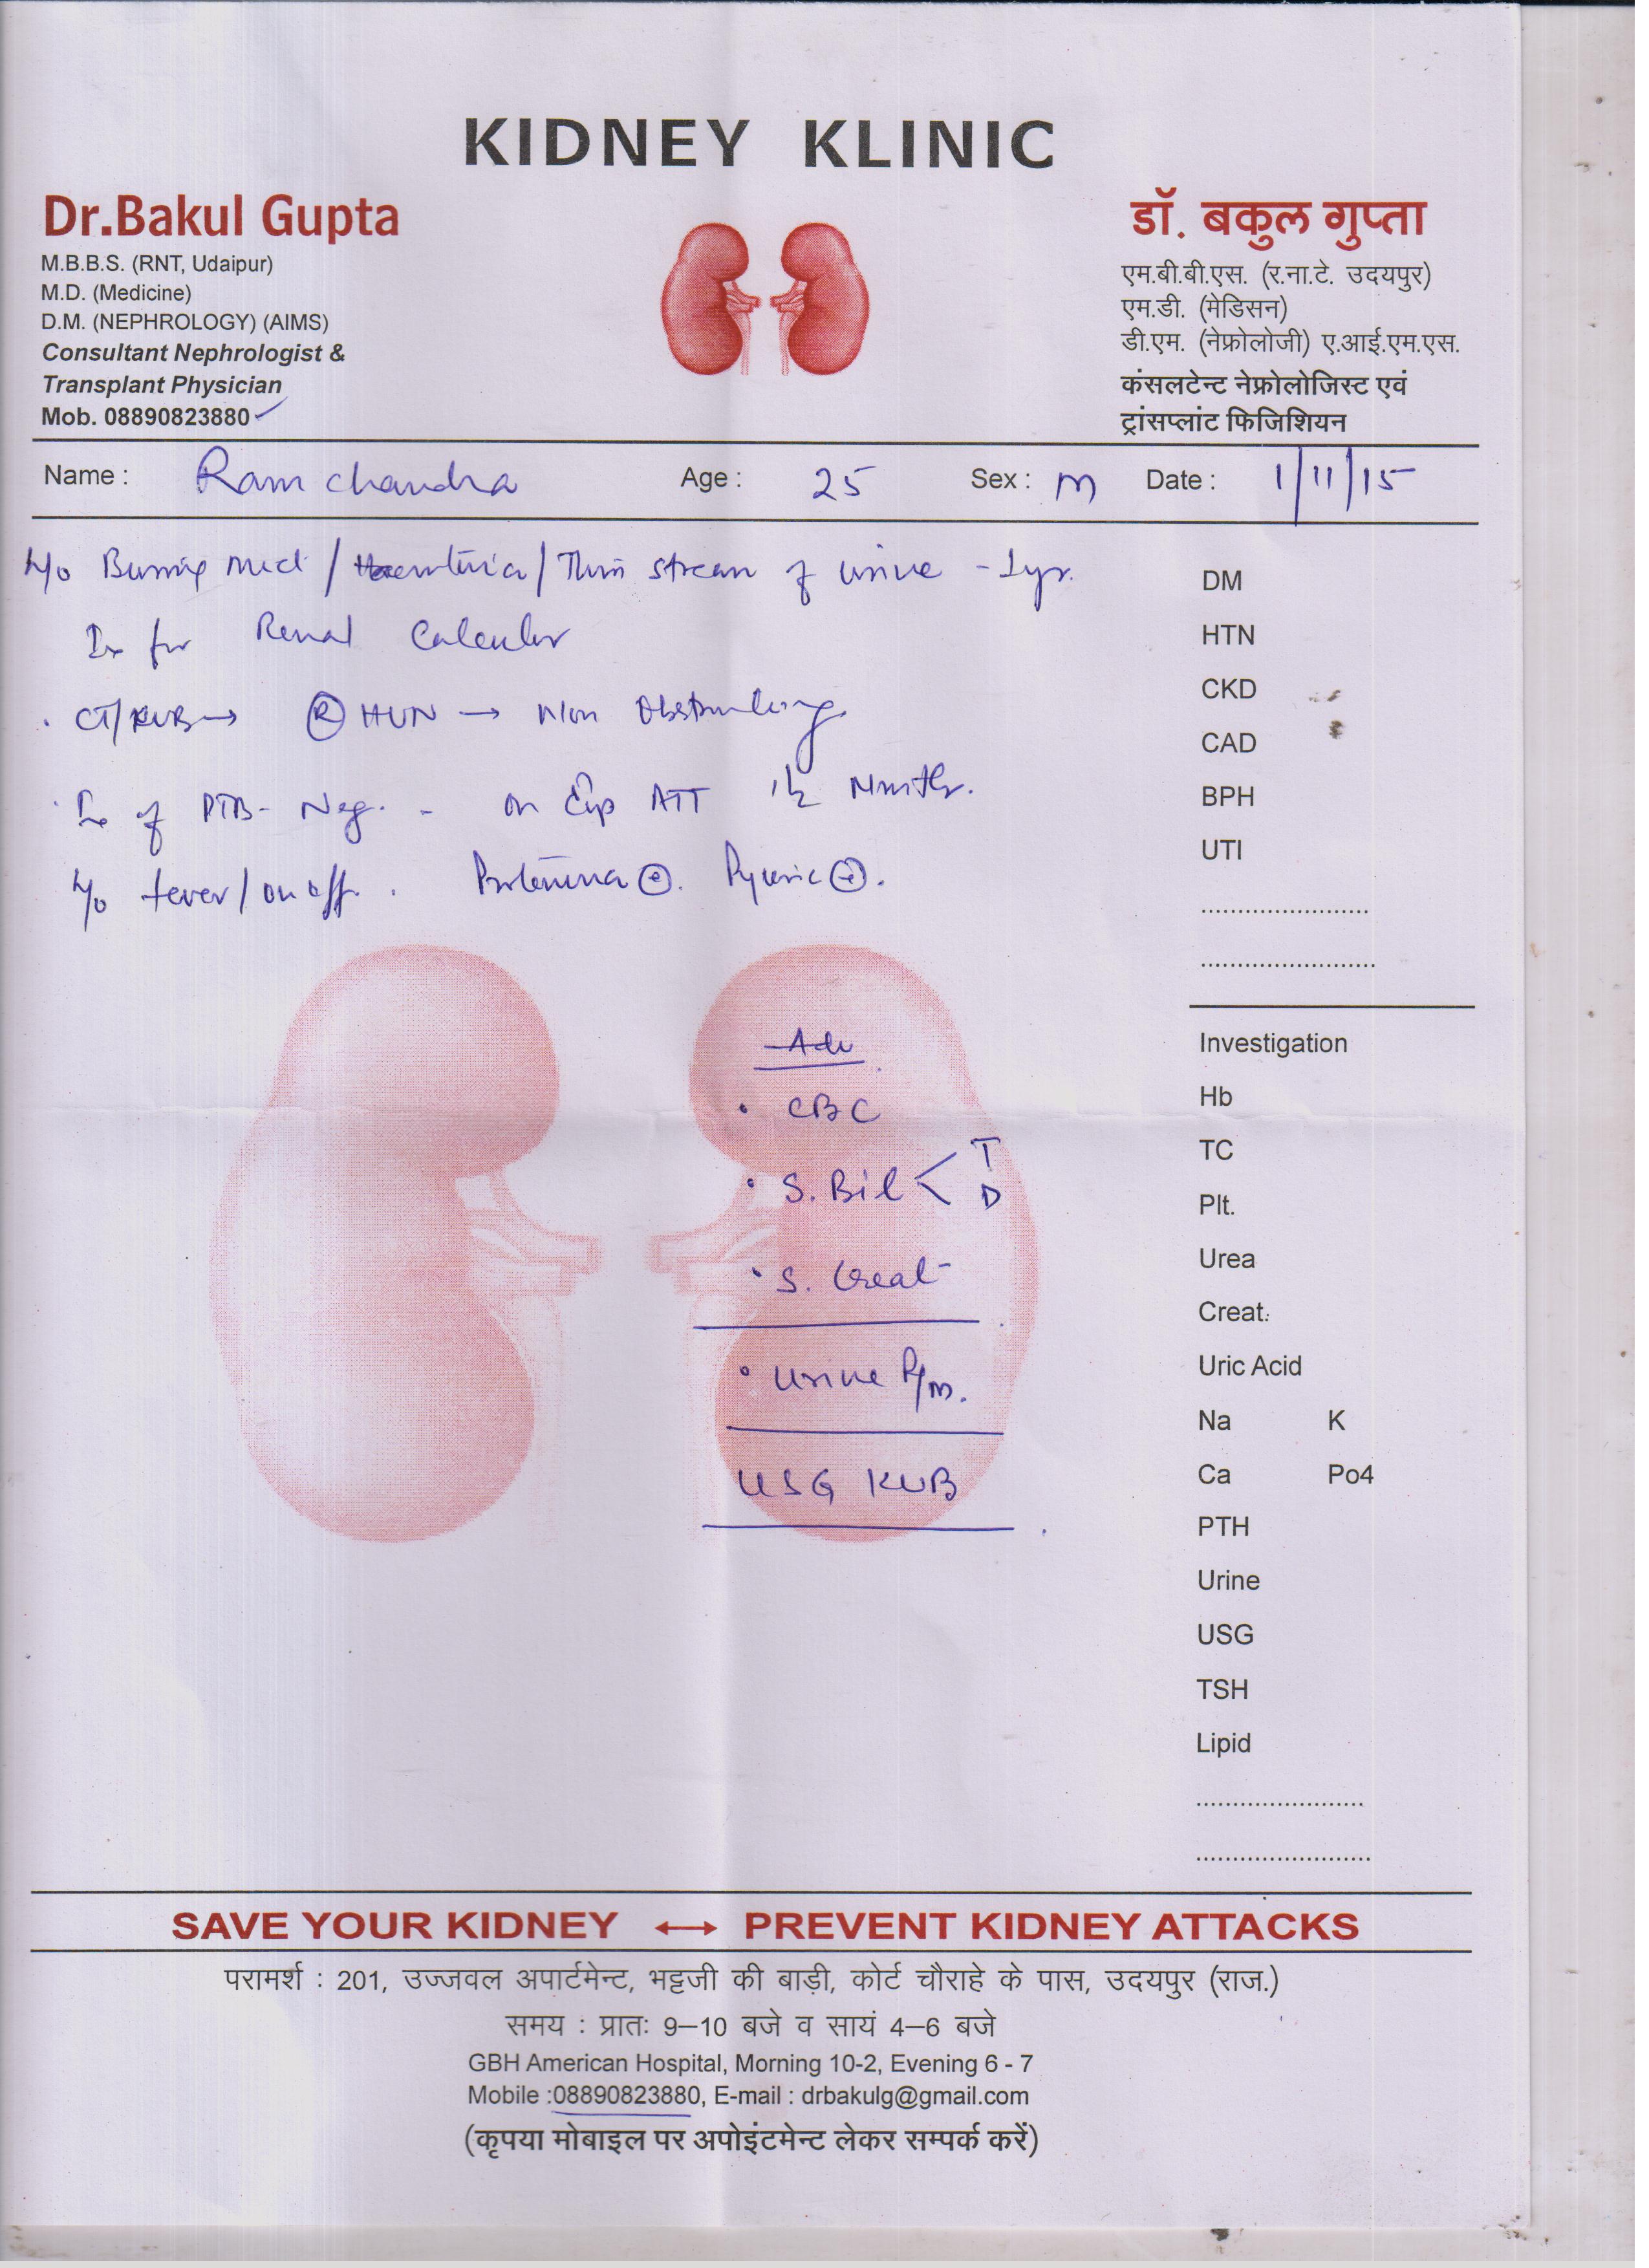 KIDNEY KLINIC
Dr.Bakul Gupta
M.B.B.S. (RNT, Udaipur)
M.D. (Medicine)
D.M. (NEPHROLOGY) (AIMS)
Consultant Nephrologist &
Transplant Physician
Mob. 08890823880
डॉ. बकुल गुप्ता
एम.बी.बी.एस. (र.ना.टे. उदयपुर)
एम.डी. (मेडिसन)
डी.एम. (नेफ्रोलोजी) ए.आई.एम.एस.
कंसलटेन्ट नेफ्रोलोजिस्ट एवं
ट्रांसप्लांट फिजिशियन
Name : Ram chandra Age : 25 Sex : M Date : 1/11/15
h/o Burning mict / Haematuria / Thin stream of urine - 1 yr.
for Renal Calculus
CT/KUB → Ⓡ HUN → Non Obstructing
of PTB - Neg. - on Emp ATT 1 1/2 Months.
h/o fever / on off. Proteinuria ⊕. Pyuria ⊕.
Adv
• CBC
• S. Bil < T D
• S. Creat
• Urine R/M.
USG KUB
DM
HTN
CKD
CAD
BPH
UTI
........................
.........................
Investigation
Hb
TC
Plt.
Urea
Creat.
Uric Acid
Na K
Ca Po4
PTH
Urine
USG
TSH
Lipid
........................
.........................
SAVE YOUR KIDNEY ↔ PREVENT KIDNEY ATTACKS
परामर्श : 201, उज्जवल अपार्टमेन्ट, भट्टजी की बाड़ी, कोर्ट चौराहे के पास, उदयपुर (राज.)
समय : प्रातः 9–10 बजे व सायं 4–6 बजे
GBH American Hospital, Morning 10-2, Evening 6 - 7
Mobile :08890823880, E-mail : drbakulg@gmail.com
(कृपया मोबाइल पर अपोइंटमेन्ट लेकर सम्पर्क करें)